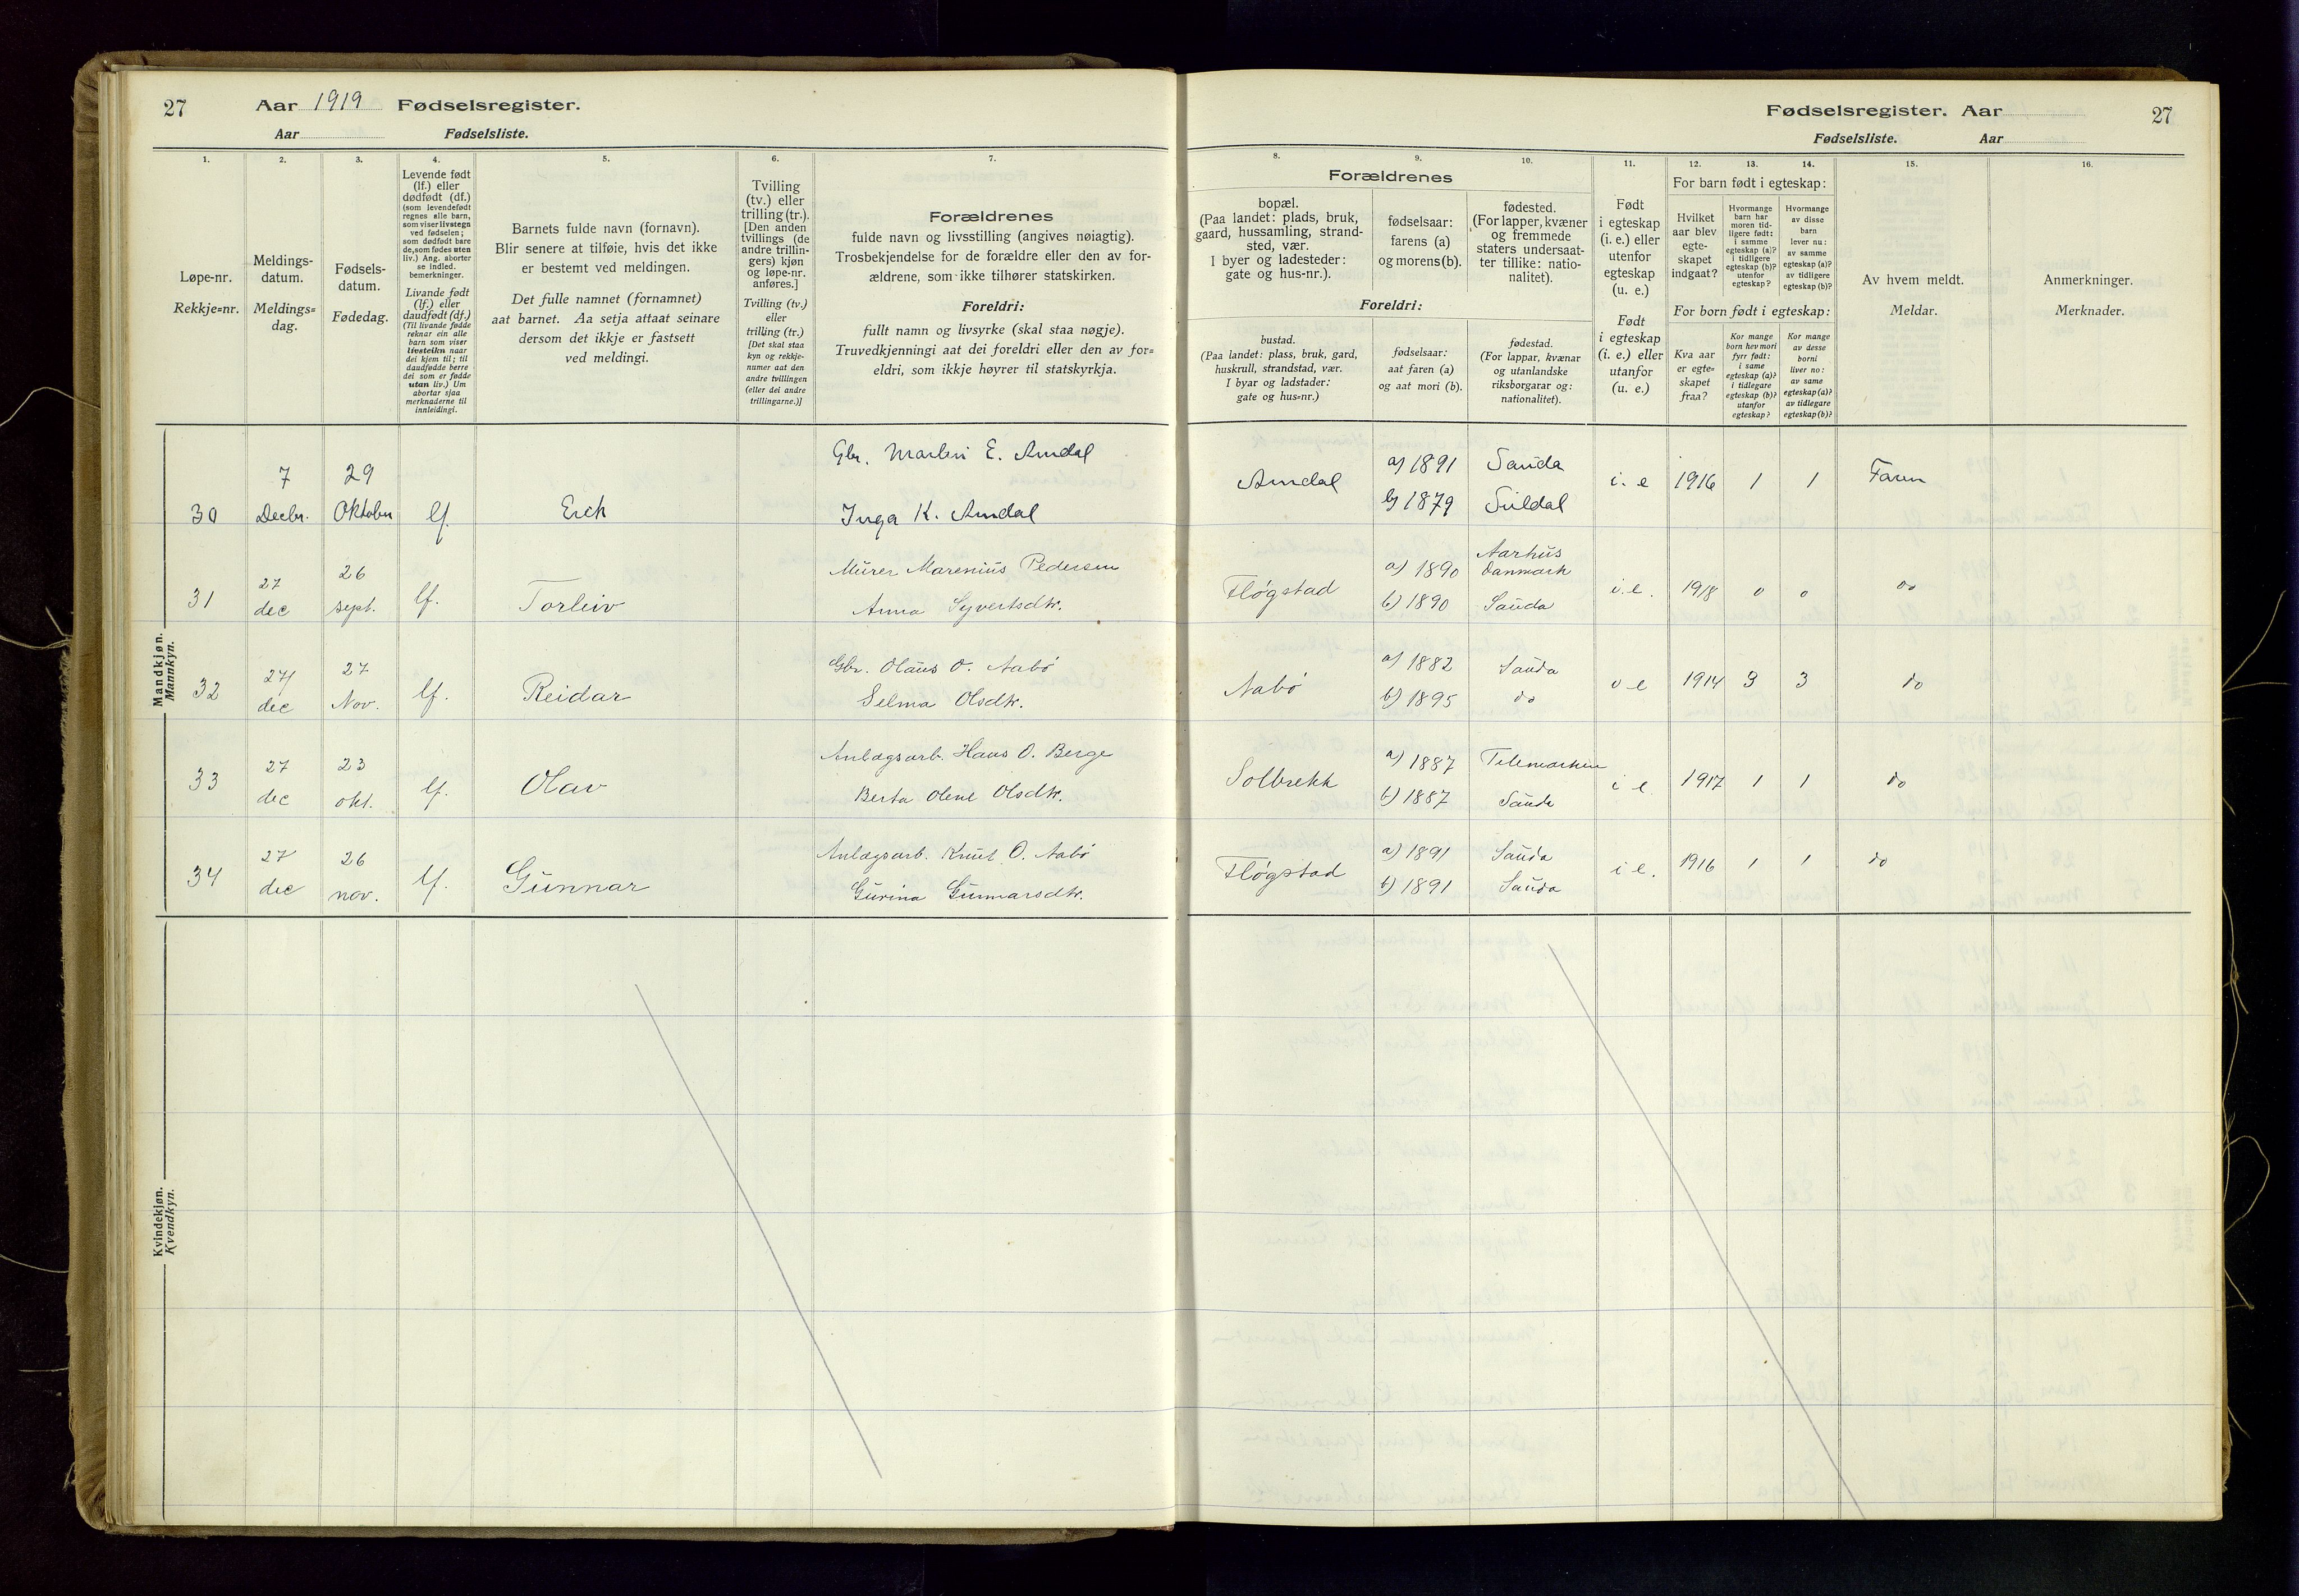 27
Aar 1919 Fødselsregister.
Aar Fødselsliste.
Fødselsregister. Aar
27
Fødselsliste. Aar
1.
Løpe-nr.
Rekkje=nr.
2.
Meldings-
datum.
Meldings=
dag.
3.
Fødsels-
datum.
Fødedag.
4.
Levende født
(lf.) eller
dødfødt (df.)
(som levendefødt
regnes alle barn,
som viser livstegn
ved fødselen;
som dødfødt bare
de, som fødes uten
liv.) Ang. aborter
se indled.
bemerkninger.
Livande født
(lf.) eller
daudfødt (df.)
(Til livande fødde
reknar ein alle
barn som viser
livsteikn naar
dei kjem til; til
daudfødde berre
dei som er fødde
utan liv.) Um
abortar sjaa
merknaderne til
innleidingi.
5.
Barnets fulde navn (fornavn).
Blir senere at tilføie, hvis det ikke
er bestemt ved meldingen.
Det fulle namnet (fornamnet)
aat barnet. Aa setja attaat seinare
dersom det ikkje er fastsett
ved meldingi.
6.
Tvilling
(tv.) eller
trilling (tr.).
[Den anden
tvillings (de
andre trillin-
gers) kjøn
og løpe-nr.
anføres.]
Tvilling (tv.)
eller
trilling (tr.)
[Det skal staa
kyn og rekkje-
numer aat den
andre tvillingen
(eller dei andre
trillingarne.)]
7.
Forældrenes
fulde navn og livsstilling (angives nøiagtig).
Trosbekjendelse for de forældre eller den av for-
ældrene, som ikke tilhører statskirken.
Foreldri:
fullt namn og livsyrke (skal staa nøgje).
Truvedkjenningi aat dei foreldri eller den av for=
eldri, som ikkje høyrer til statskyrkja.
Forældrenes
8.
bopæl.
(Paa landet: plads, bruk,
gaard, hussamling, strand-
sted, vær.
I byer og ladesteder:
gate og hus-nr.).
9.
fødselsaar:
farens (a)
og morens (b).
10.
fødested.
(For lapper, kvæner
og fremmede
staters undersaat-
ter tillike: natio-
nalitet).
Foreldri:
bustad.
(Paa landet: plass, bruk, gard,
huskrull, strandstad, vær.
I byar og ladstader:
gate og hus=nr.)
fødselsaar:
aat faren (a)
og aat mori (b).
fødestad.
(For lappar, kvænar
og utanlandske
riksborgarar og:
nationalitet).
11.
Født
i egteskap
(i. e.) eller
utenfor
egteskap
(u. e.)
Født
i egteskap
(i. e.) eller
utanfor
(u. e.)
For barn født i egteskap:
12.
Hvilket
aar blev
egte-
skapet
indgaat?
13.
Hvormange
barn har
moren tid-
ligere født:
i samme
egteskap (a)?
i tidligere
egteskap (b)?
utenfor
egteskap?
14.
Hvormange
av disse
barn
lever nu:
av samme
egteskap (a)?
av tidligere
egteskap (b)?
For born født i egteskap:
Kva aar
er egte=
skapet
fraa?
Kor mange
born hev mori
fyrr født:
i same
egteskap (a)?
i tidlegare
egteskap (b)?
utanfor
egteskap?
Kor mange
av desse
borni
liver no:
av same
egteskap (a)?
av tidlegare
egteskap (b)?
15.
Av hvem meldt.
Meldar.
16.
Anmerkninger.
Merknader.
Mandkjøn.
Mannkyn.
30 7 Decbr. 29 Oktober lf. Erik
Gbr. Martin E. Amdal
Inga K. Amdal
Amdal a) 1891 Sauda i. e 1916 1 1 Faren
b) 1879 Suldal
31 27 dec 26 sept. lf. Torleiv
Murer Marenius Pedersen
Anna Syvertsdtr.
Fløgstad a) 1890 Aarhus Danmark i. e. 1918 0 0 do
b) 1890 Sauda
32 27 dec 27 Nov. lf. Reidar
Gbr. Olaus O. Aabø
Selma Olsdtr.
Aabø a) 1882 Sauda 1914 3 3 do
b) 1895 do
33 27 dec 23 okt. lf. Olav
Anlægsarb. Hans O. Berge
Berta Olene Olsdtr.
Solbrekk a) 1887 Telemarken i e 1917 1 1 do
b) 1887 Sauda
34 27 dec 26 nov. lf. Gunnar
Anlægsarb. Knut O. Aabø
Gurina Gunnarsdtr.
Fløgstad a) 1891 Sauda i e. 1916 1 1 do
b) 1891 Sauda
Kvindekjøn.
Kvendkyn.